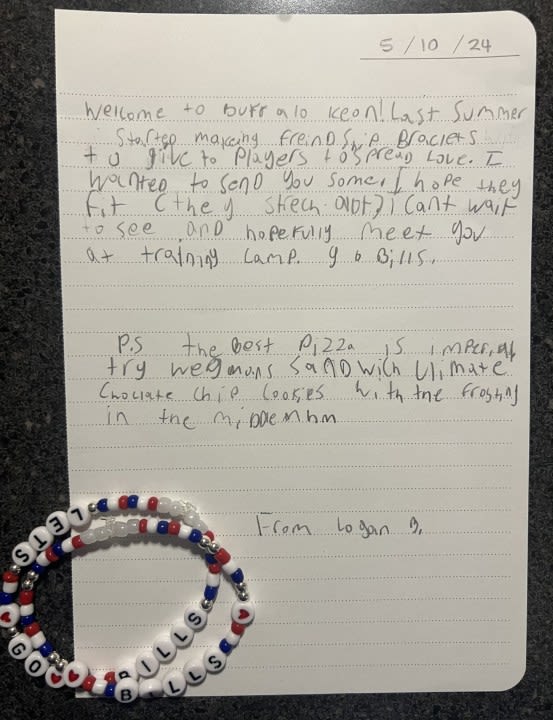 5/10/24
Welcome to buffalo Keon! Last Summer
I Started making freindship Braclets
to give to Players to spread Love. I
wanted to send you some. I hope they
fit (they strech alot) i cant wait
to see and hopefully meet you
at training camp. go Bills.
P.S the Best Pizza is imperial
try wegmans SANDWich Ulimate
Choclate Chip Cookies with the frosting
in the middle Mhm
From Logan B.
LETS
GO
BILLS
BILLS